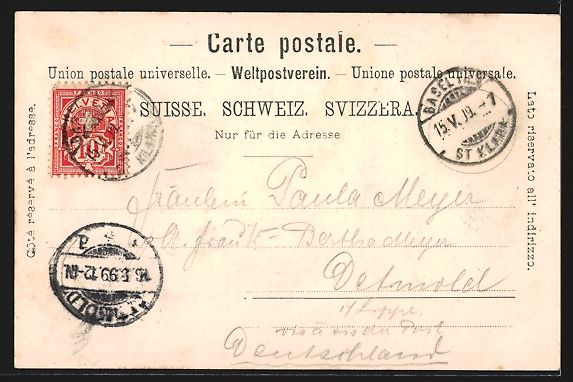 — Carte postale. —
Union postale universelle. — Weltpostverein. — Unione postale universale.
SUISSE. SCHWEIZ. SVIZZERA.
Nur für die Adresse
Côté réservé à l'adresse.
Lato riservato all' indirizzo.
HELVETIA
10
BASEL
15.V.99.-7
ST KLARA
DETMOLD
16.5.99.12-1N.
Fräulein Paula Meyer
Bertha Meyer
Detmold
i/Lippe.
vis à vis der Post
Deutschland